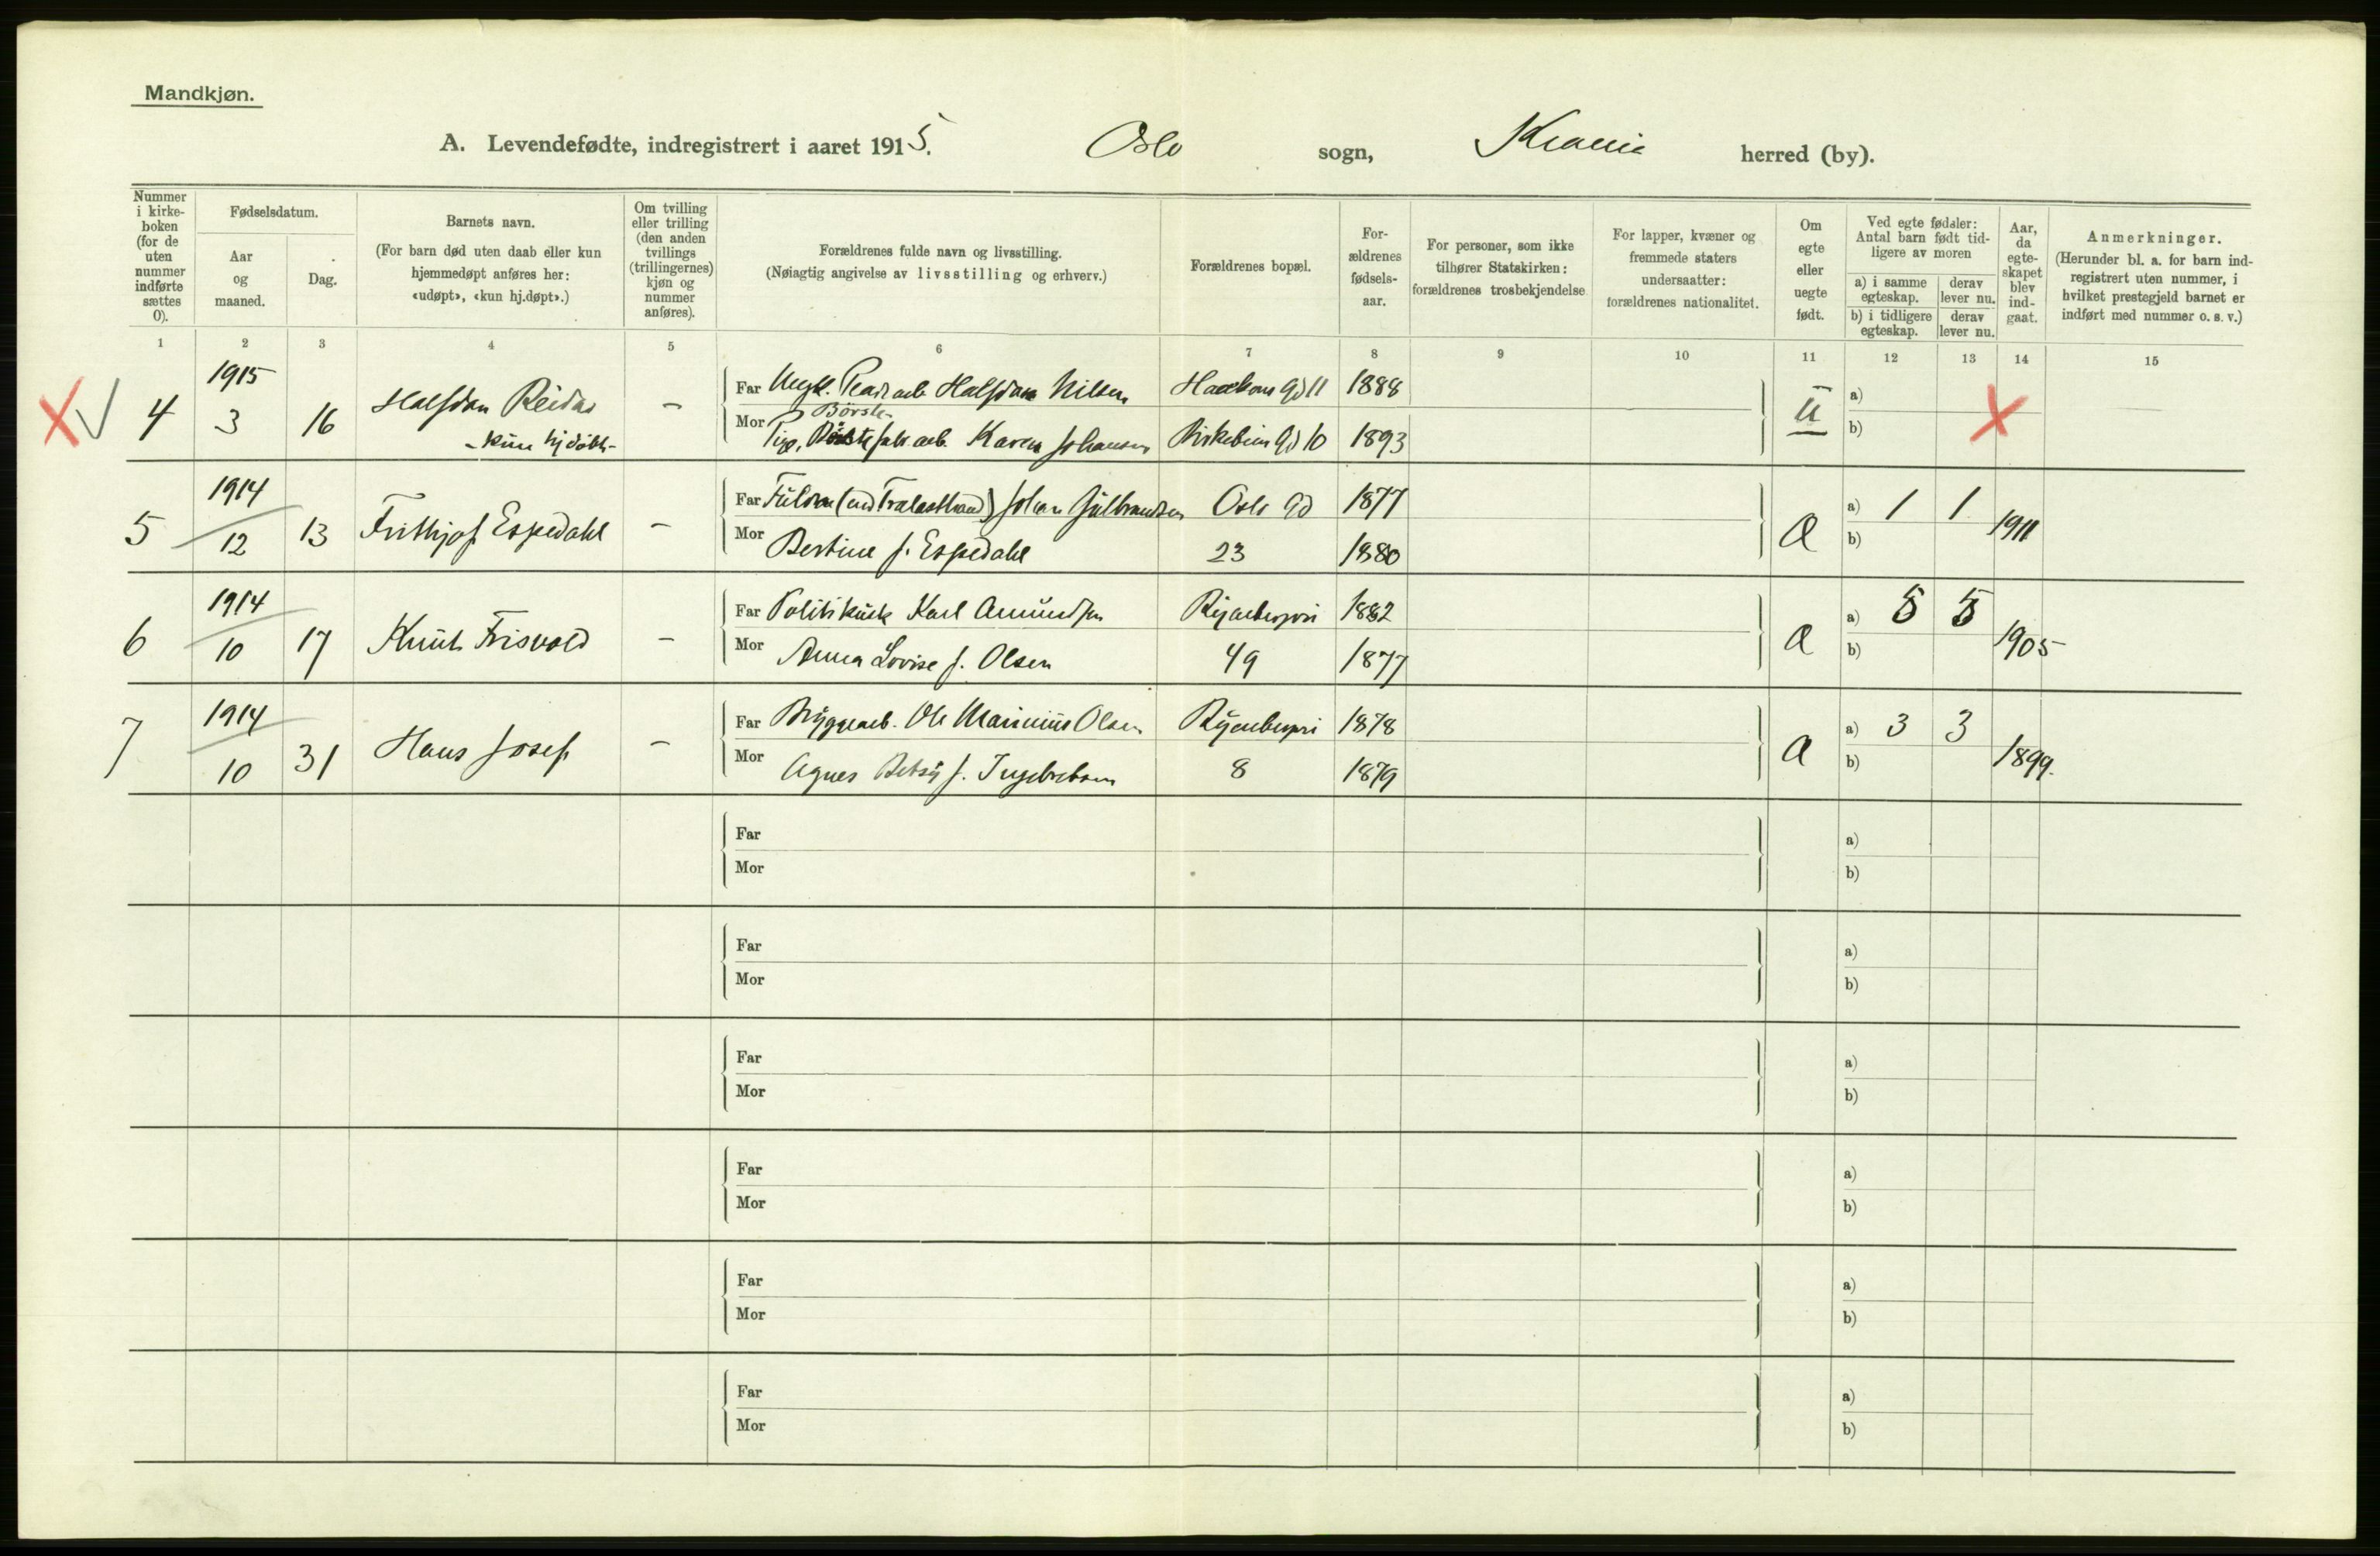 Mandkjøn.
A. Levendefødte, indregistrert i aaret 1915. Oslo sogn, Krania herred (by).
Nummer i kirke-boken (for de uten nummer indførte sættes 0).
Fødselsdatum.
Aar og maaned.
Dag.
Barnets navn.
(For barn død uten daab eller kun hjemmedøpt anføres her: «udøpt», «kun hj.døpt».)
Om tvilling eller trilling (den anden tvillings (trillingernes) kjøn og nummer anføres).
Forældrenes fulde navn og livsstilling.
(Nøiagtig angivelse av livsstilling og erhverv.)
Forældrenes bopæl.
For-ældrenes fødsels-aar.
For personer, som ikke tilhører Statskirken: forældrenes trosbekjendelse
For lapper, kvæner og fremmede staters undersaatter: forældrenes nationalitet.
Om egte eller uegte født.
Ved egte fødsler: Antal barn født tid-ligere av moren
a) i samme egteskap.
derav lever nu.
b) i tidligere egteskap.
derav lever nu.
Aar, da egte-skapet blev ind-gaat.
Anmerkninger.
(Herunder bl. a. for barn ind-registrert uten nummer, i hvilket prestegjeld barnet er indført med nummer o. s. v.)
1 2 3 4 5 6 7 8 9 10 11 12 13 14 15
4 1915 3 16 Halfdan Reidar - kun hjdøbt - –
Far Ungk. Halfdan Nilsen Haakons Gd 11 1888
Mor Pige, Börste fabr arb. Karen Johansen Birkebein Gd 10 1893
U a) b)
5 1914 12 13 Frithjof Espedahl –
Far Johan Gulbrandsen Oslo Gd 1877
Mor Bertine f. Espedahl 23 1880
a) 1 1 b) 1911
6 1914 10 17 Knut Frisvold –
Far Politikusk Karl Amundsen Ryenbergvei 1882
Mor Anna Lovise f. Olsen 49 1877
a) 5 5 b) 1905
7 1914 10 31 Hans Josef –
Far Bryggearb. Ole Marinius Olsen Ryenbergvei 1878
Mor Agnes Betsy f. Ingebretsen 8 1879
a) 3 3 b) 1899.
Far a)
Mor b)
Far a)
Mor b)
Far a)
Mor b)
Far a)
Mor b)
Far a)
Mor b)
Far a)
Mor b)